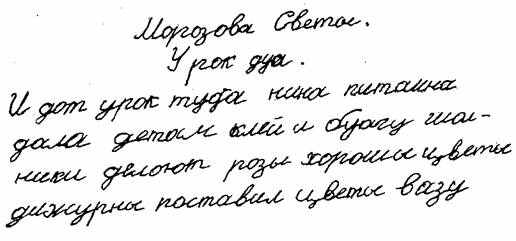 Морозова Светы.
Урок дуа.
И дот урок туфа нина питаина
дала детам клей и буагу шка-
ники делоют розы хорошы цветы
дижурны поставил цветы вазу